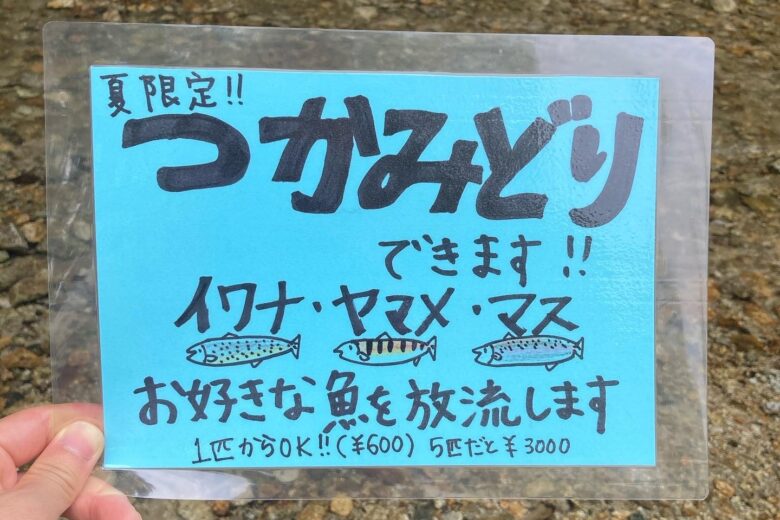 夏限定!!
つかみどり
できます!!
イワナ・ヤマメ・マス
お好きな魚を放流します
1匹からOK!!(¥600) 5匹だと¥3000